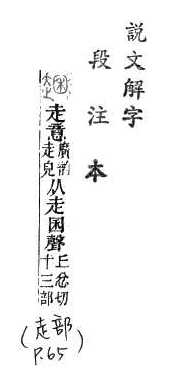 說文解字
段注本
走意
廣韵
走皃
从走困聲
丘忿切
十三部
(走部
P.65)